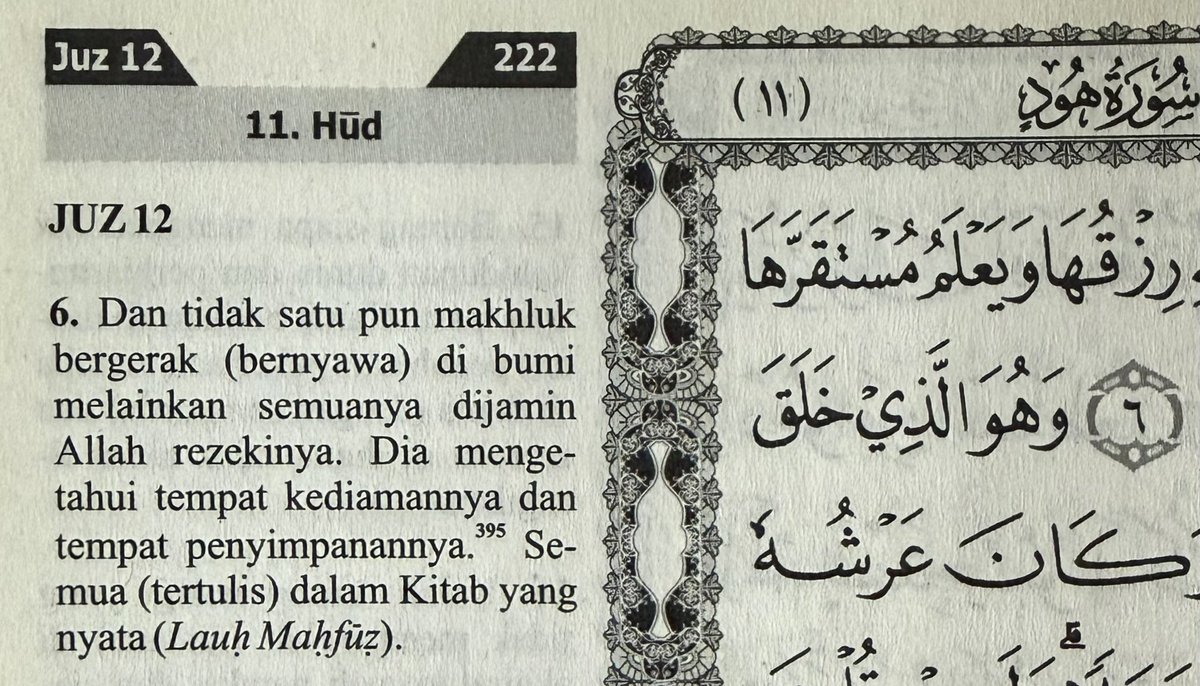 Juz 12
222
11. Hūd
JUZ 12
6. Dan tidak satu pun makhluk
bergerak (bernyawa) di bumi
melainkan semuanya dijamin
Allah rezekinya. Dia menge-
tahui tempat kediamannya dan
tempat penyimpanannya.³⁹⁵ Se-
mua (tertulis) dalam Kitab yang
nyata (Lauḥ Maḥfūẓ).
سُوْرَةُ هُوْدٍ (١١)
رِزْقُهَا وَيَعْلَمُ مُسْتَقَرَّهَا
٦ وَهُوَ الَّذِيْ خَلَقَ
كَانَ عَرْشُهٗ